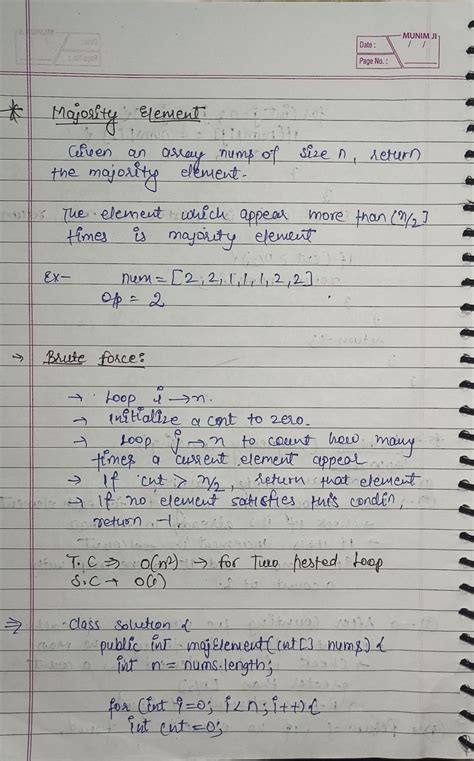 MUNIM JI
Date : / /
Page No. :
* Majority Element
Given an array nums of size n, return
the majority element.
The element which appear more than [n/2]
times is majority element
Ex- num = [2,2,1,1,1,2,2]
Op = 2
→ Brute force:
→ Loop i → n.
→ initialize a cnt to zero.
→ Loop j → n to count how many
times a current element appear
→ If cnt > n/2, return that element
→ If no element satisfies this condin,
return -1.
T.C ⇒ O(n²) → for Two nested Loop
S.C → O(1)
⇒ Class solution {
public int majElement(int[] nums) {
int n = nums.length;
for (int i=0; i<n; i++) {
int cnt =0;